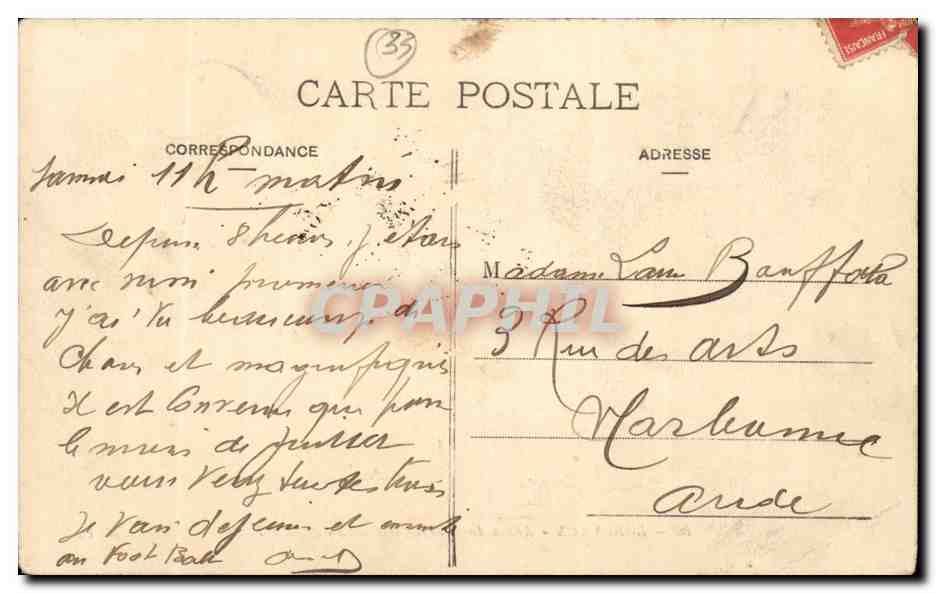 33
FRANÇAISE
CARTE POSTALE
CORRESPONDANCE
ADRESSE
Samedi 11h matin
Depuis 8 heures j'étais
avec mimi promener
j'ai vu beaucoup de
Choses et magnifiques
Il est Convenu que pour
le mois de Juillet
vous venez tous les trois
Je vais dejeuner et ensuite
au Foot Ball
Madame Laure Bouffort
3 Rue des arts
Narbonne
Aude
CPAPHIL